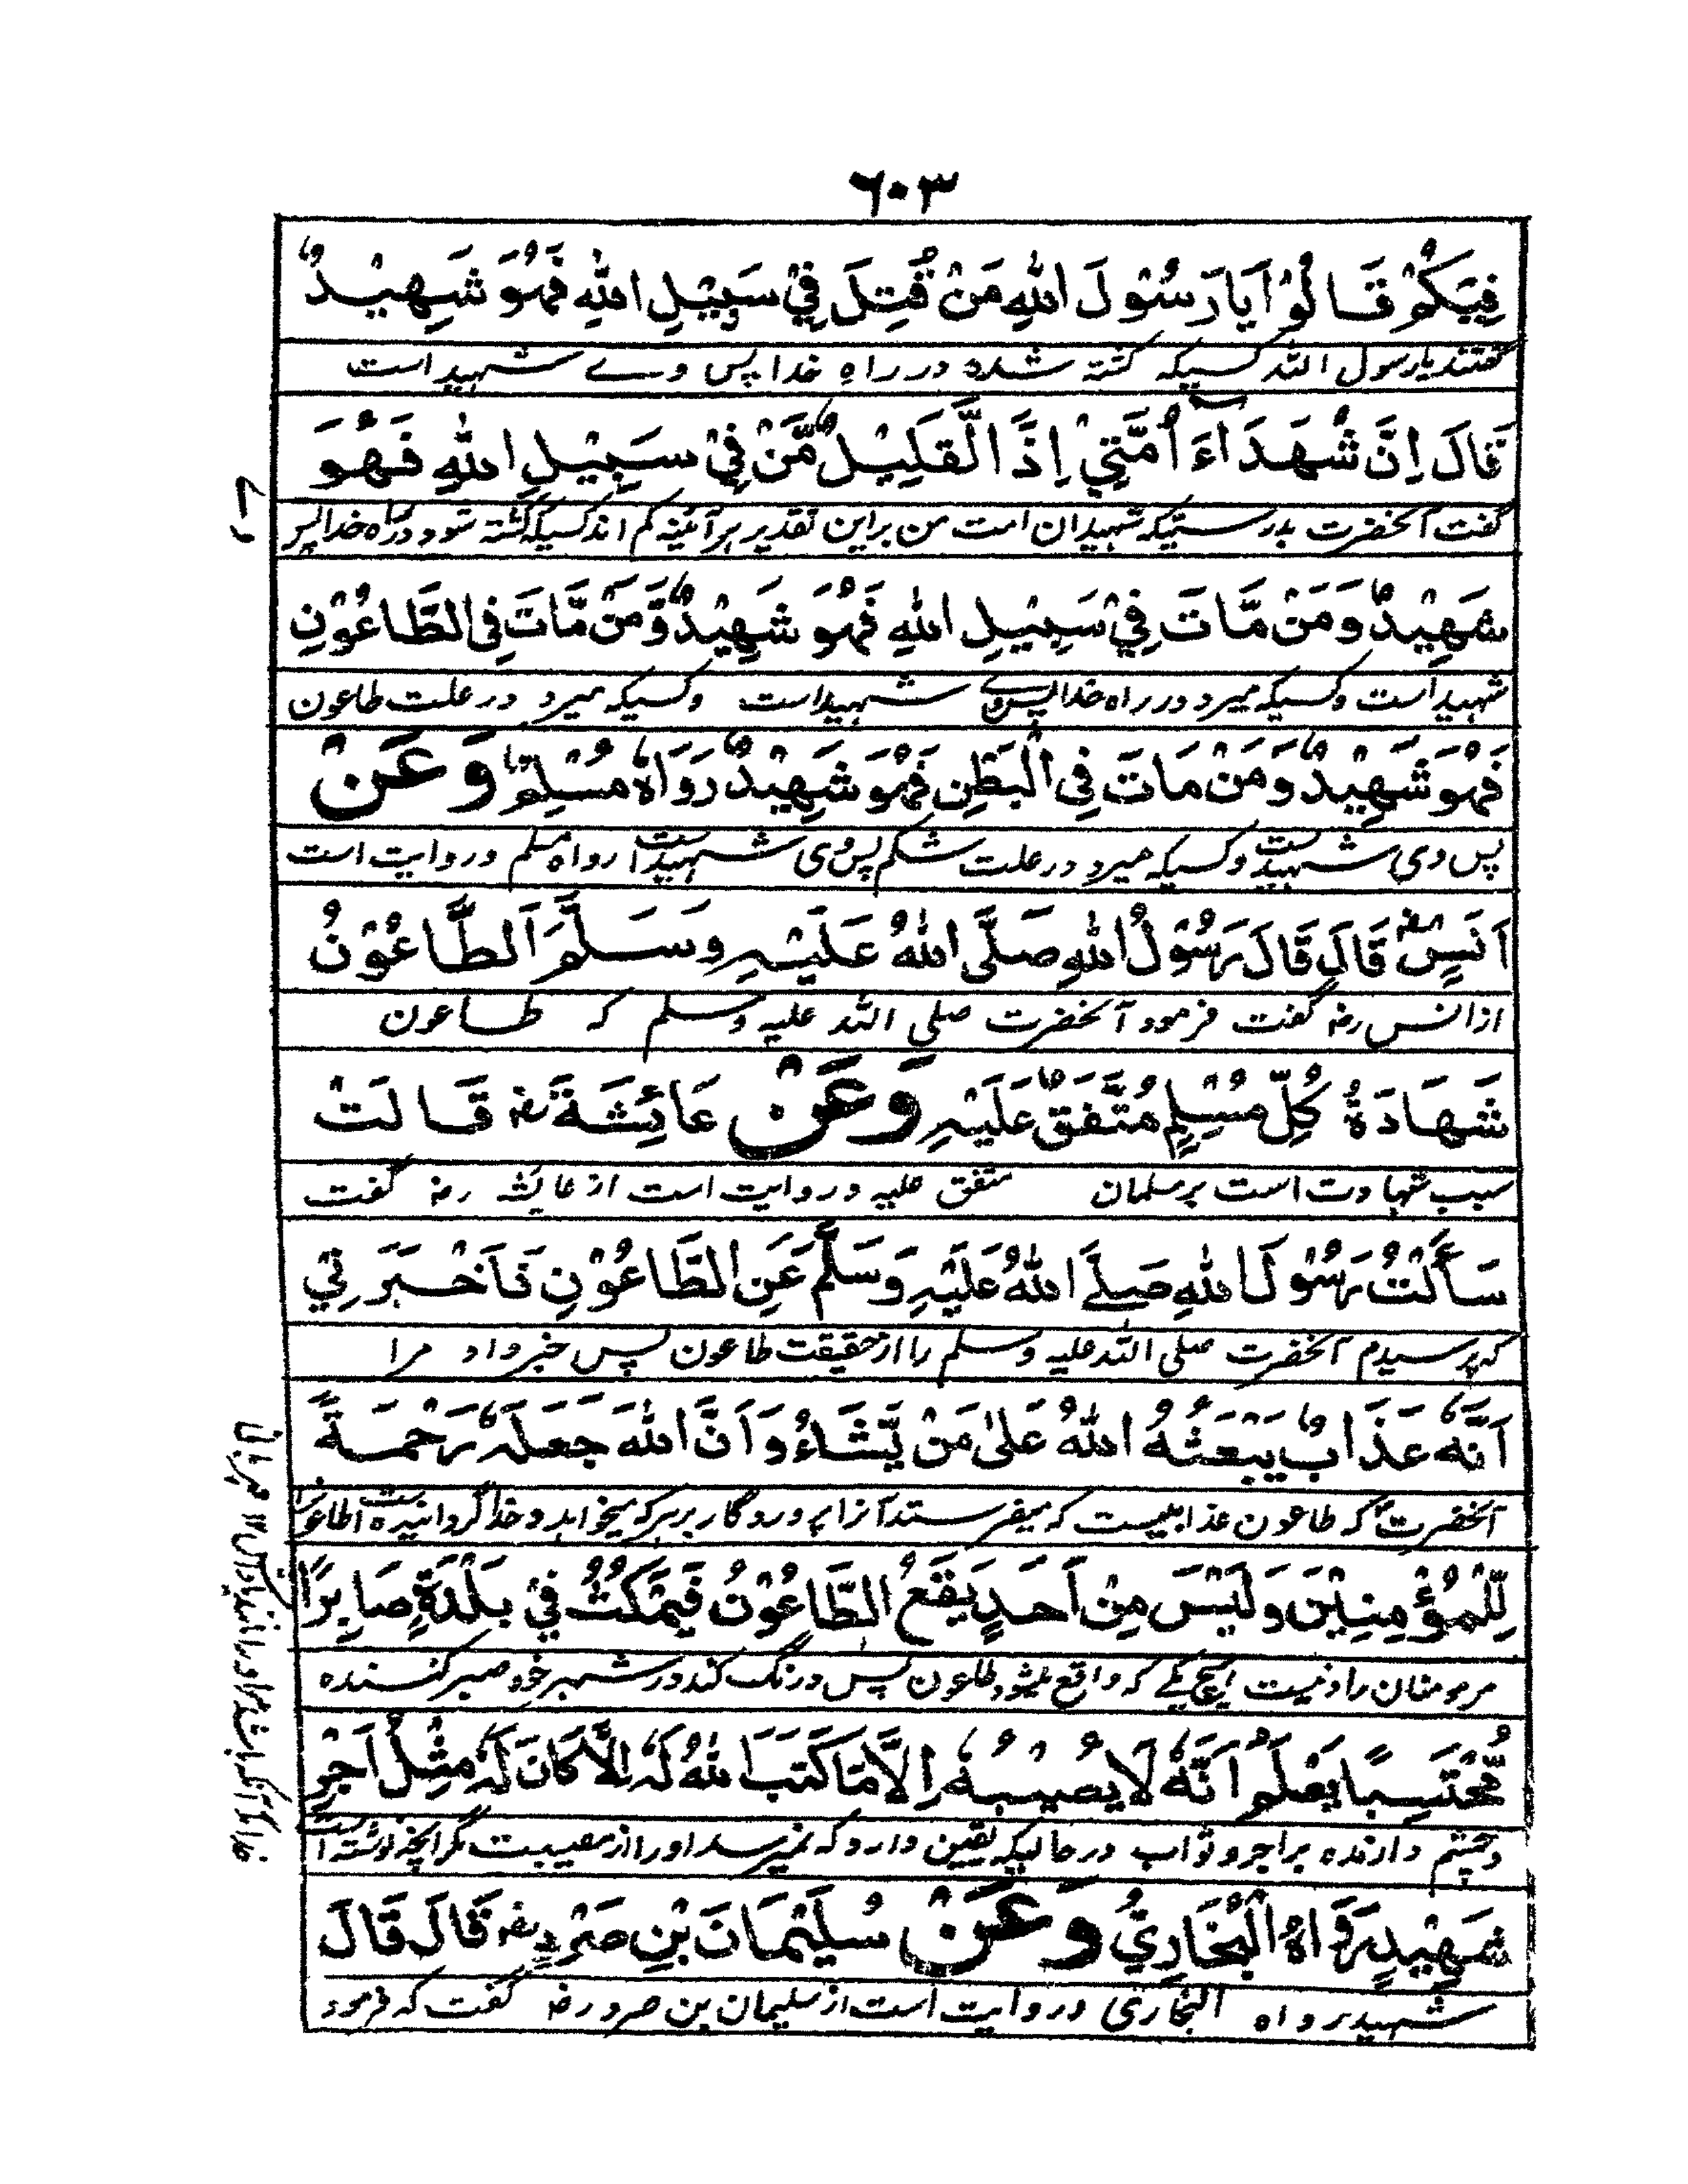 ٦٠٣
فِيْكُمْ قَالُوْا يَا رَسُوْلَ اللّٰهِ مَنْ قُتِلَ فِيْ سَبِيْلِ اللّٰهِ فَهُوَ شَهِيْدٌ
گفتند یا رسول اللہ کسیکہ کشتہ شدہ در راہِ خدا پس وے شہید است
قَالَ اِنَّ شُهَدَاۤءَ اُمَّتِيْ اِذًا لَّقَلِيْلٌ مَّنْ فِيْ سَبِيْلِ اللّٰهِ فَهُوَ
گفت آنحضرت بدرستیکہ شہیدان امت من براین تقدیر ہرآئینہ کم اند کسیکہ کشتہ شود در راہ خدا پس
وے
شَهِيْدٌ وَمَنْ مَّاتَ فِيْ سَبِيْلِ اللّٰهِ فَهُوَ شَهِيْدٌ وَّمَنْ مَّاتَ فِي الطَّاعُوْنِ
شہید است وکسیکہ میرد در راہ خدا پس وے شہید است وکسیکہ میرد در علت طاعون
فَهُوَ شَهِيْدٌ وَمَنْ مَاتَ فِي الْبَطْنِ فَهُوَ شَهِيْدٌ رَوَاهُ مُسْلِمٌ وَعَنْ
پس وی شہیدست وکسیکہ میرد در علت شکم پس وی شہید است رواہ مسلم و روایت است
اَنَسٍ رض قَالَ قَالَ رَسُوْلُ اللّٰهِ صَلَّى اللّٰهُ عَلَيْهِ وَسَلَّمَ اَلطَّاعُوْنُ
از انس رض گفت فرمود آنحضرت صلی اللہ علیہ وسلم کہ طاعون
شَهَادَةُ كُلِّ مُسْلِمٍ مُتَّفَقٌ عَلَيْهِ وَعَنْ عَائِشَةَ رض قَالَتْ
سبب شہادت است ہر مسلمان متفق علیہ و روایت است از عایشہ رض گفت
سَأَلْتُ رَسُوْلَ اللّٰهِ صَلَّے اللّٰهُ عَلَيْهِ وَسَلَّمَ عَنِ الطَّاعُوْنِ فَاَخْبَرَنِيْ
کہ پرسیدم آنحضرت صلی اللہ علیہ وسلم را از حقیقت طاعون پس خبر داد مرا
اَنَّهٗ عَذَابٌ يَبْعَثُهُ اللّٰهُ عَلٰى مَنْ يَّشَاءُ وَاَنَّ اللّٰهَ جَعَلَهٗ رَحْمَةً
آنحضرت کہ طاعون عذابیست کہ میفرستد آنرا پروردگار بر ہر کہ میخواہد و خدا گردانیدہ است طاعون را
لِّلْمُؤْمِنِيْنَ وَلَيْسَ مِنْ اَحَدٍ يَقَعُ الطَّاعُوْنُ فَيَمْكُثُ فِيْ بَلْدَةٍ صَابِرًا
مر مومنان را و نیست ہیچ یکے کہ واقع میشود طاعون پس درنگ کند در شہر خود صبر کنندہ
مُّحْتَسِبًا يَعْلَمُ اَنَّهٗ لَا يُصِيْبُهٗ اِلَّا مَا كَتَبَ اللّٰهُ لَهٗ اِلَّا كَانَ لَهٗ مِثْلُ اَجْرِ
و چشم دارندہ بر اجر و ثواب در حالیکہ یقین دارد کہ نمیرسد او را از مصیبت مگر آنچہ نوشتہ است
شَهِيْدٍ رَوَاهُ الْبُخَارِيُّ وَعَنْ سُلَيْمَانَ بْنِ صَرْدٍ رض قَالَ قَالَ
شہید رواہ البخاری و روایت است از سلیمان بن صرد رض گفت کہ فرمود